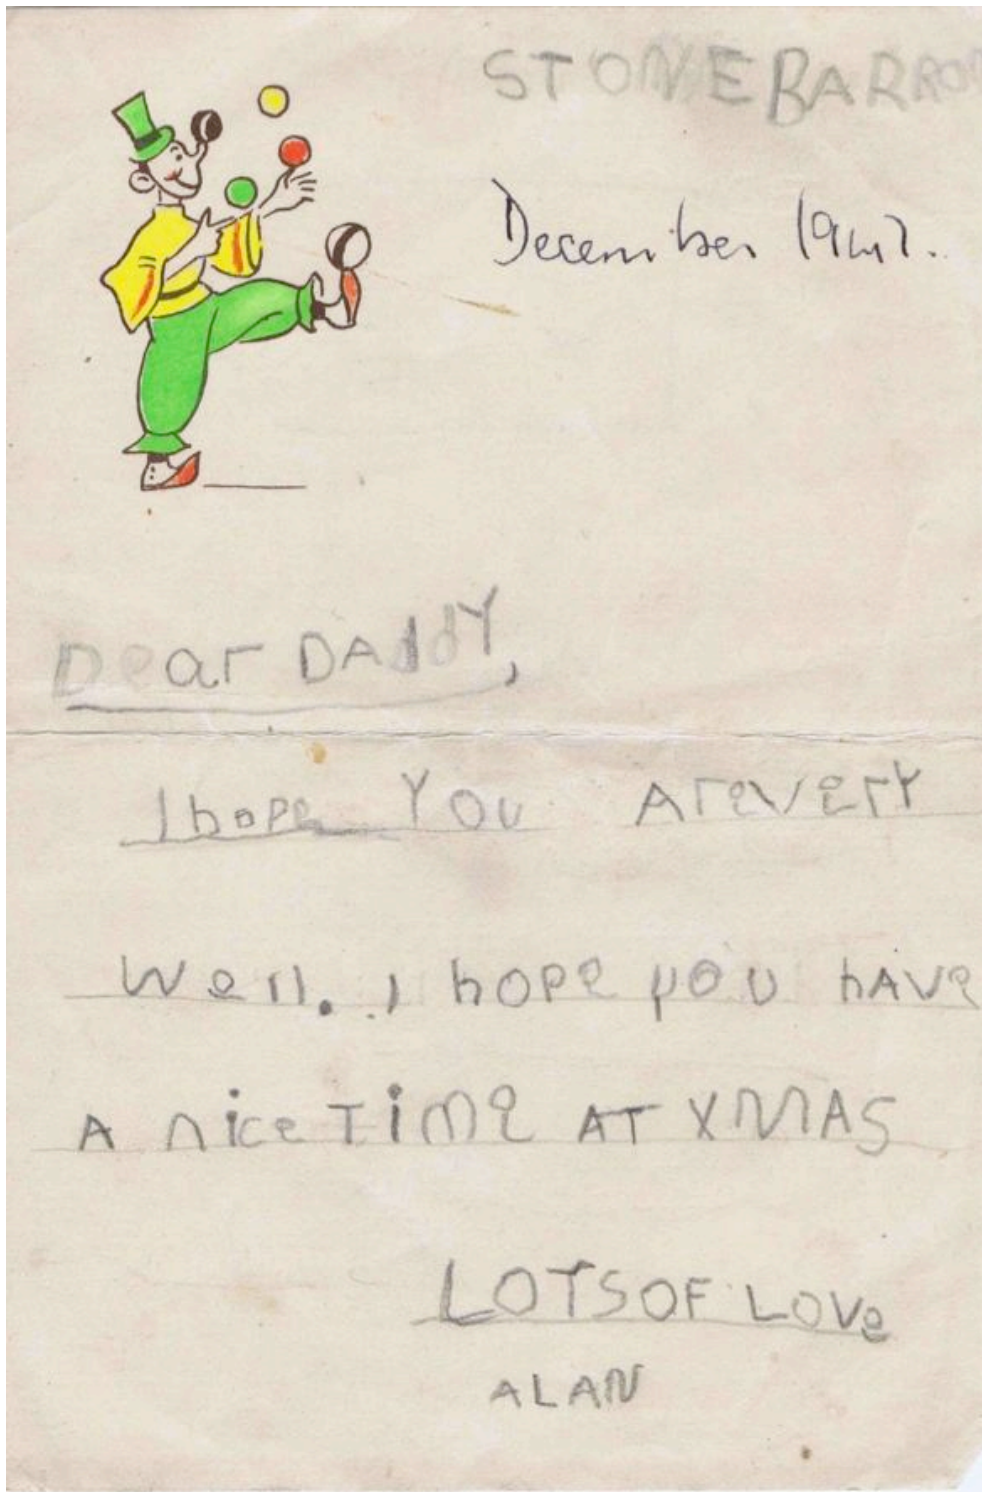 STONEBARRO
December 1947.
Dear DAddY,
I hope You AreverY
Well. I hope you hAve
A nice Time AT XMAS
LOTSOF LOVe
ALAN